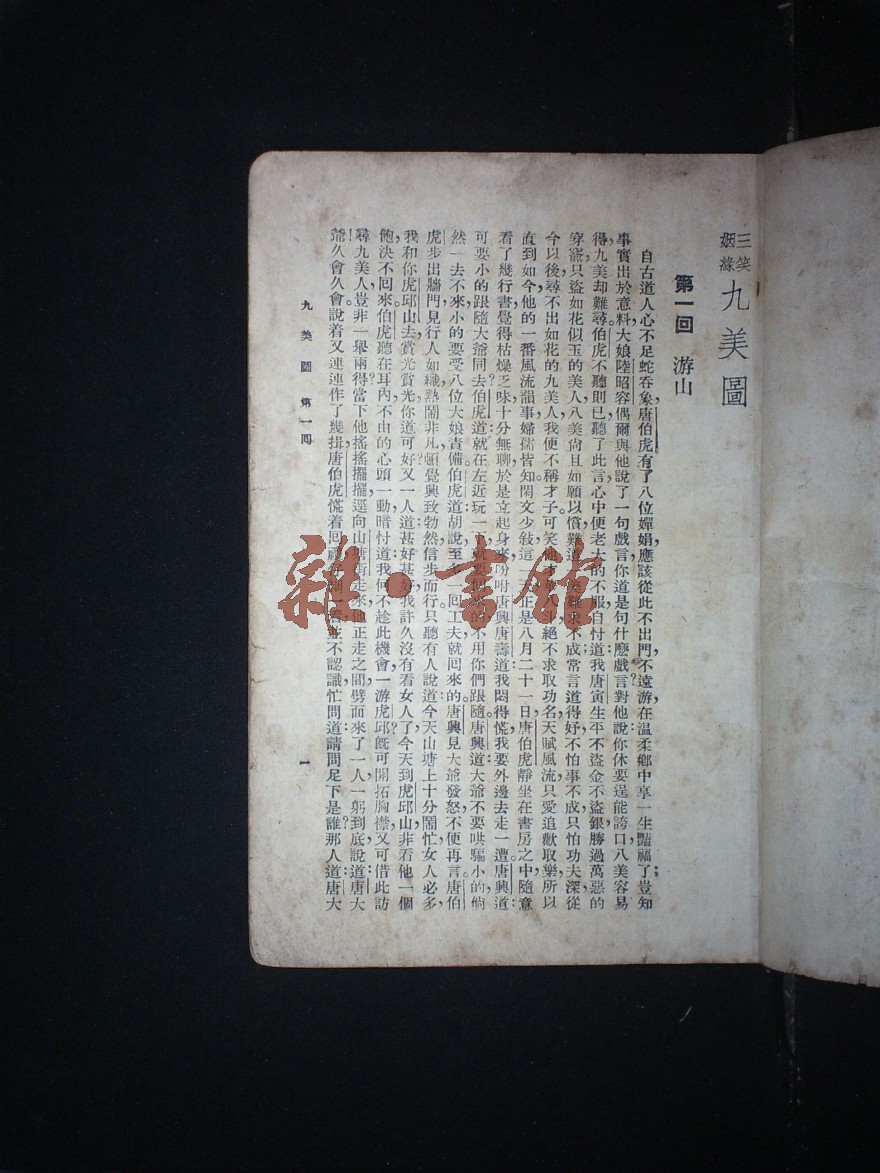 三笑姻緣 九美圖
第一回 游山
自古道人心不足蛇吞象唐伯虎有了八位嬋娟應該從此不出門不遠游在溫柔鄉中享一生豔福了豈知
事實出於意料大娘陸昭容偶爾與他說了一句戲言你道是句什麼戲言對他說你休要逞能誇口八美容易
得九美却難尋伯虎不聽則已聽了此言心中便老大的不服自忖道我唐寅生平不盜金不盜銀勝過萬惡的
穿窬只盜如花似玉的美人八美尚且如願以償難道一美難求不成常言道得好不怕事不成只怕功夫深從
今以後尋不出如花的九美人我便不稱才子可笑他才高八斗絕不求取功名天賦風流只愛追歡取樂所以
直到如今他的一番風流韻事婦孺皆知閑文少敍這一天正是八月二十一日唐伯虎靜坐在書房之中隨意
看了幾行書覺得枯燥乏味十分無聊於是立起身來吩咐唐興唐壽道我悶得慌我要外邊去走一遭唐興道
可要小的跟隨大爺同去伯虎道就在左近玩一下就要回來的不用你們跟隨唐興道大爺不要哄騙小的倘
然一去不來小的要受八位大娘責備伯虎道胡說至多一回工夫就回來的唐興見大爺發怒不便再言唐伯
虎步出牆門見行人如織熱鬧非凡頓覺興致勃然信步而行只聽有人說道今天山塘上十分鬧忙女人必多
我和你虎邱山去賞光賞光你道可好又一人道甚好甚好我許久沒有看女人了今天到虎邱山非看他一個
飽決不回來伯虎聽在耳內不由的心頭一動暗忖道我何不趁此機會一游虎邱既可開拓胸襟又可借此訪
尋九美人豈非一舉兩得當下他搖搖擺擺逕向山塘街走來他正走之間劈面來了一人一躬到底說道唐大
爺久會久會說着又連連作了幾揖唐伯虎慌着回禮仔細一看並不認識忙問道請問足下是誰那人道唐大
九美圖 第一回
一
雜·書館